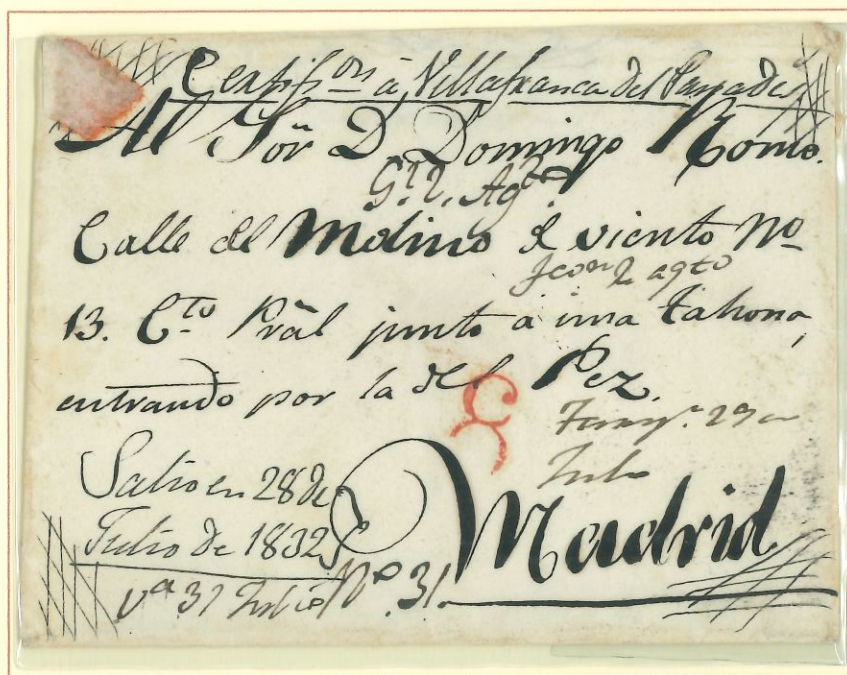 à Villafranca del Panades
Al Sor. D. Domingo Romo.
Calle del Molino de viento No
13. Cto. Pral junto a una tahona,
entrando por la del Pez.
29
Julio
Salio en 28 de
Julio de 1832
Madrid
va 31 Julio No. 31.